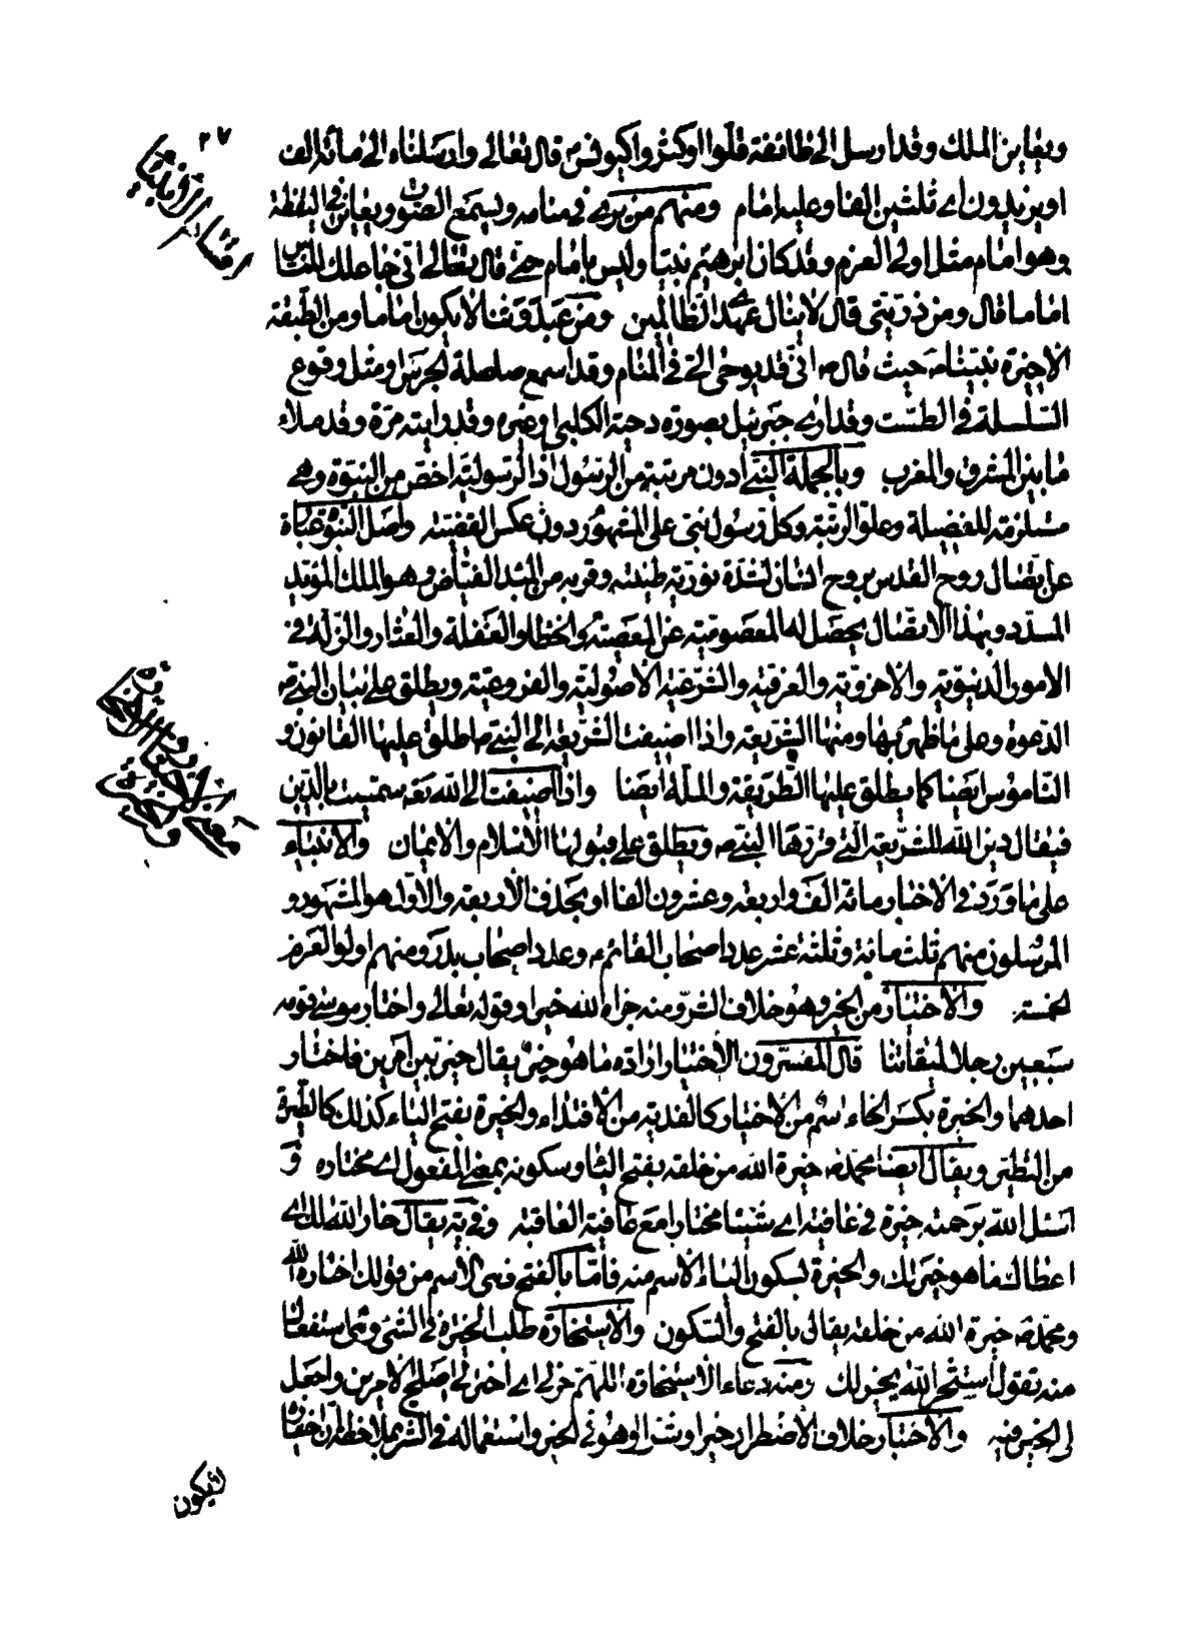 ٢٧
اقسام الانبياء
ويعاين الملك وقد ارسل الى طائفة قلوا او كثروا كيونس قال تعالى وارسلناه الى مائة الف
او يزيدون اى ثلثين الفا وعليه امام ومنهم من يرى فى منامه ويسمع الصوت ويعاين فى اليقظة
وهو امام مثل اولى العزم وقد كان ابرهيم نبيا وليس بامام حتى قال تعالى انى جاعلك للناس
اماما قال ومن ذريتى قال لا ينال عهدى الظالمين ومن عبد وثنا لا يكون اماما ومن الطبقة
الاخيرة نبينا ص حيث قال ص انى قد يوحى الى فى المنام وقد اسمع صلصلة الجرس او مثل وقوع
السلسلة فى الطست وقد ارى جبرئيل بصورة دحية الكلبى او غيره وقد رايته مرة وقد ملاء
ما بين المشرق والمغرب وبالجملة النبى ادون مرتبة من الرسول اذ الرسولية اخص من النبوة وهى
مستلزمة للفضيلة وعلو الرتبة وكل رسول نبى على المشهور دون عكس القضية واصل النبوة عبارة
عن اتصال روح القدس بروح انسان لشدة نورية طينته وقربه من المبدء الفياض وهو الملك المؤيد
المسدد وبهذا الاتصال يحصل له المعصومية عن المعصية والخطاء والغفلة والعثار والزلة فى
الامور الدنيوية والاخروية والعرفية والشرعية الاصولية والفروعية ويطلق على بيان النبى ص
الدعوة وعلى ما ظهر بها ومنها الشريعة واذا اضيفت الشريعة الى النبى ص اطلق عليها القانون و
الناموس ايضا كما يطلق عليها الطريقة والملة ايضا واذا اضيفت الى الله تعه سميت بالدين
فيقال دين الله للشريعة التى قررها النبى ص ويطلق على قبولها الاسلام والايمان والانبياء
على ما ورد فى الاخبار مائة الف واربعة وعشرون الفا او بحذف الاربعة والاول هو المشهور و
المرسلون منهم ثلث مائة وثلثة عشر عدد اصحاب القائم ع وعدد اصحاب بدر ومنهم اولو العزم
الخمسة والاختيار من الخير وهو خلاف الشر ومنه جزاه الله خيرا وقوله تعالى واختار موسى قومه
سبعين رجلا لميقاتنا قال المفسرون الاختيار ارادة ما هو خير يقال خير بين امرين فاختار
احدهما والخيرة بكسر الخاء اسم من الاختيار كالفدية من الافتداء والخيرة بفتح الياء كذلك كالطيرة
من التطير ويقال ايضا محمد ص خيرة الله من خلقه بفتح الياء وسكونه بمعنى المفعول اى مختاره و
اسئل الله برحمته خيرة فى عافية اى شيئا مختارا مع عافية العاقبة وفى يه يقال خار الله لك اى
اعطاك ما هو خير لك والخيرة بسكون الياء الاسم منه فاما بالفتح فهى الاسم من قولك اختاره الله
ومحمد ص خيرة الله من خلقه يقال بالفتح والسكون والاستخارة طلب الخيرة فى الشئ وهى استفعال
منه تقول استخر الله يخر لك ومنه دعاء الاستخارة اللهم خر لى اى اختر لى اصلح الامرين واجعل
لى الخير فيه والاختيار خلاف الاضطرار خيرا وشرا وهو فى الخير واستعماله فى الشر بملاحظة ان اختيار
ليكون